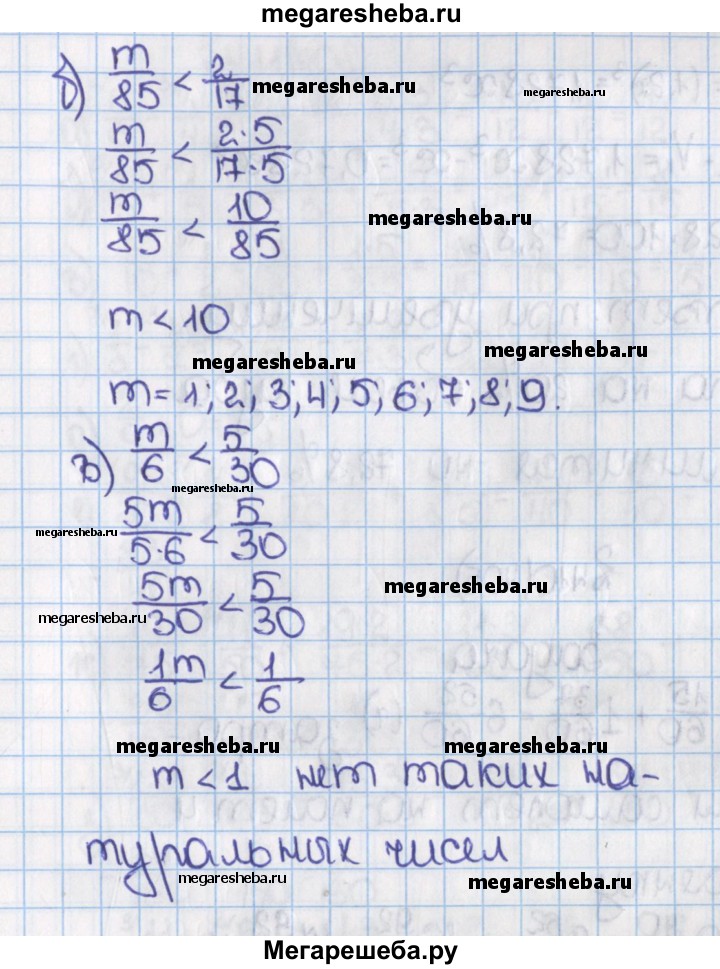 megaresheba.ru
б) m/85 < 2/17 megaresheba.ru megaresheba.ru
m/85 < 2·5/17·5
m/85 < 10/85 megaresheba.ru
m < 10
megaresheba.ru megaresheba.ru
m = 1; 2; 3; 4; 5; 6; 7; 8; 9.
в) m/6 < 5/30
megaresheba.ru
megaresheba.ru 5m/5·6 < 5/30
megaresheba.ru 5m/30 < 5/30 megaresheba.ru
1m/6 < 1/6
megaresheba.ru megaresheba.ru
m < 1 нет таких на-
туральных чисел
megaresheba.ru megaresheba.ru
Мегарешеба.ру